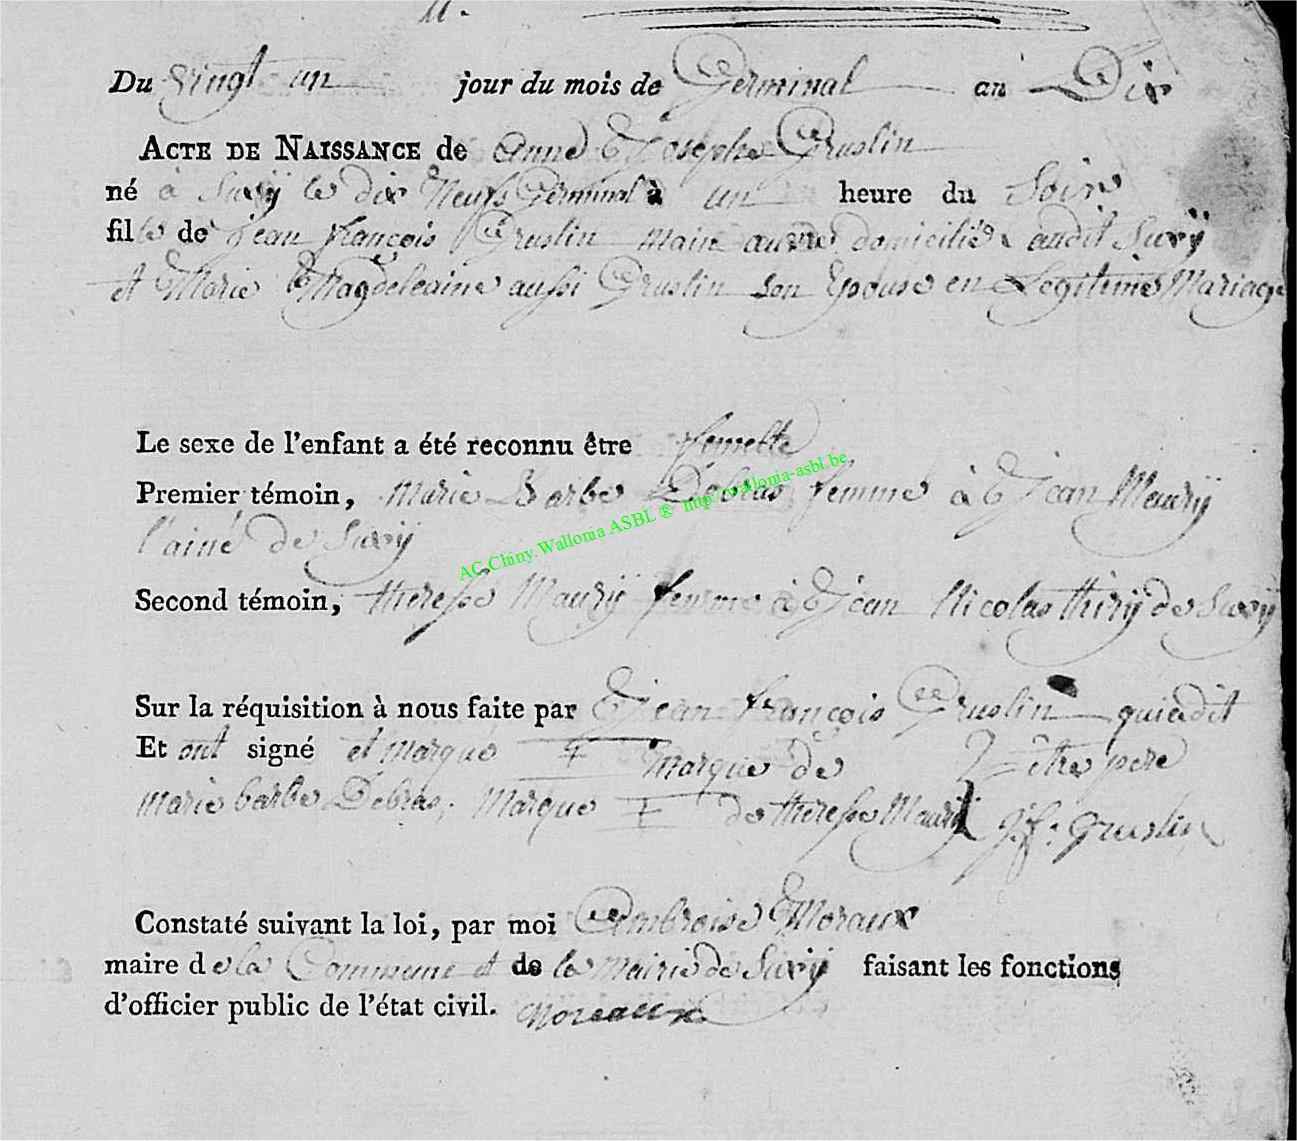 11.
Du vingt un jour du mois de Germinal an Dix
ACTE DE NAISSANCE de Anne Josephe Gruslin
né à Suxÿ le dix Neuf Germinal à un heure du Soir
fille de jean françois Gruslin domicilié audit Suxÿ
et Marie Magdeleaine aussi Gruslin son Epouse en Legitime Mariage
Le sexe de l'enfant a été reconnu être femelle
Premier témoin, Marie Barbe Debras femme à Jean Maurÿ
l'ainé de Suxÿ
AC.Chiny.Wallonia ASBL ® http://wallonia-asbl.be
Second témoin, theresse Maurÿ femme à Jean Nicolas thirÿ de Suxÿ
Sur la réquisition à nous faite par Jean françois Gruslin qui a dit
Et ont signé et marque ‡ marque de être pere
Marie barbe Debras, Marque ‡ de theresse Maurÿ j: f: gruslin
Constaté suivant la loi, par moi Ambroise Moraux
maire de la Commune et de la mairie de Suxÿ faisant les fonctions
d'officier public de l'état civil. Moreaux